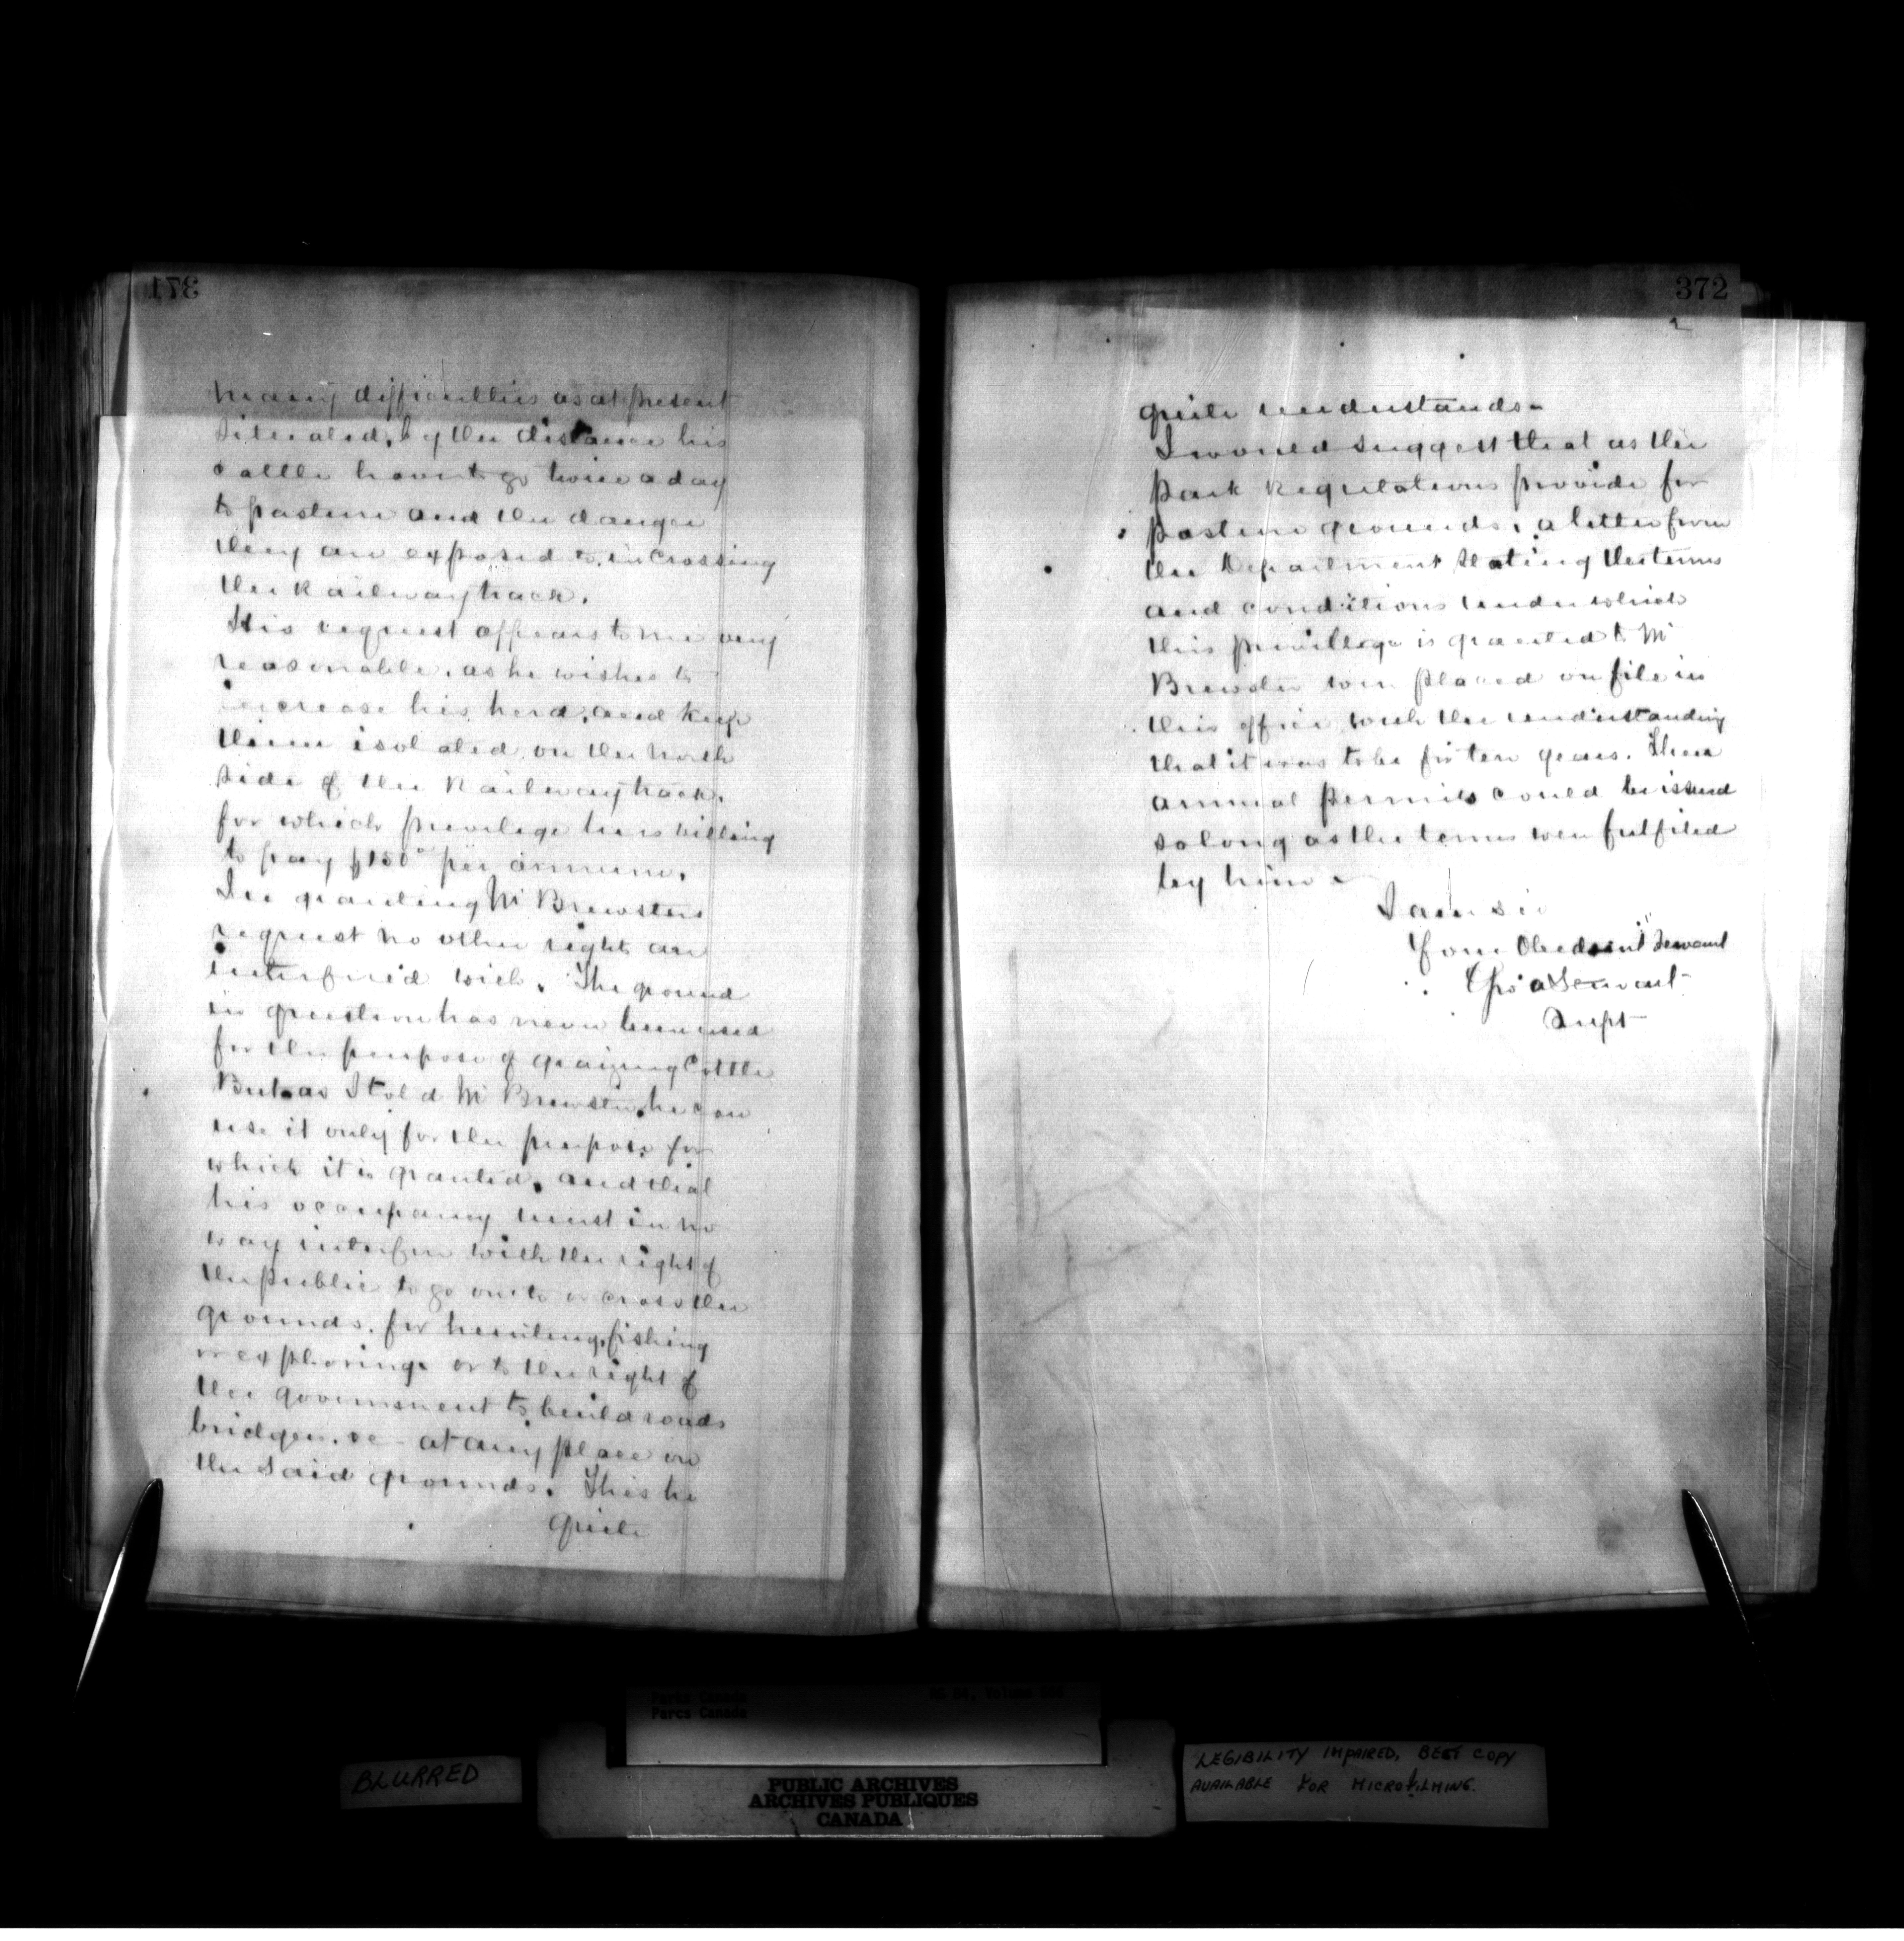 371
many difficulties as at present
situated, by the distance his
cattle have to go twice a day
to pasture and the danger
they are exposed to, in crossing
the Railway track.
His request appears to me very
reasonable, as he wishes to
increase his herd, and keep
them isolated on the north
side of the Railway track,
for which privilege he is willing
to pay $150° per annum.
In granting Mr Brewsters
request no other rights are
interfered with. The ground
in question has never been used
for the purpose of grazing Cattle
But as I told Mr Brewster, he can
use it only for the purpose for
which it is granted, and that
his occupancy must in no
way interfere with the right of
the public to go onto or cross the
grounds, for hunting, fishing
or exploring or to the right of
the government to build roads
bridges, &c - at any place on
the said grounds. This he
quite
372
2
quite understands-
I would suggest that as the
Park Regulations provide for
pasture grounds, a letter from
the Department stating the terms
and conditions under which
this privillege is granted to Mr
Brewster were placed on file in
this office with the understanding
that it was to be for ten years. Then
annual permits could be issued
so long as the terms were fulfiled
by him -
I am sir
Your Obedient Servant
Supt
Parks Canada
Parcs Canada
BLURRED
PUBLIC ARCHIVES
ARCHIVES PUBLIQUES
CANADA
LEGIBILITY IMPAIRED, BEST COPY
AVAILABLE FOR MICROFILMING.